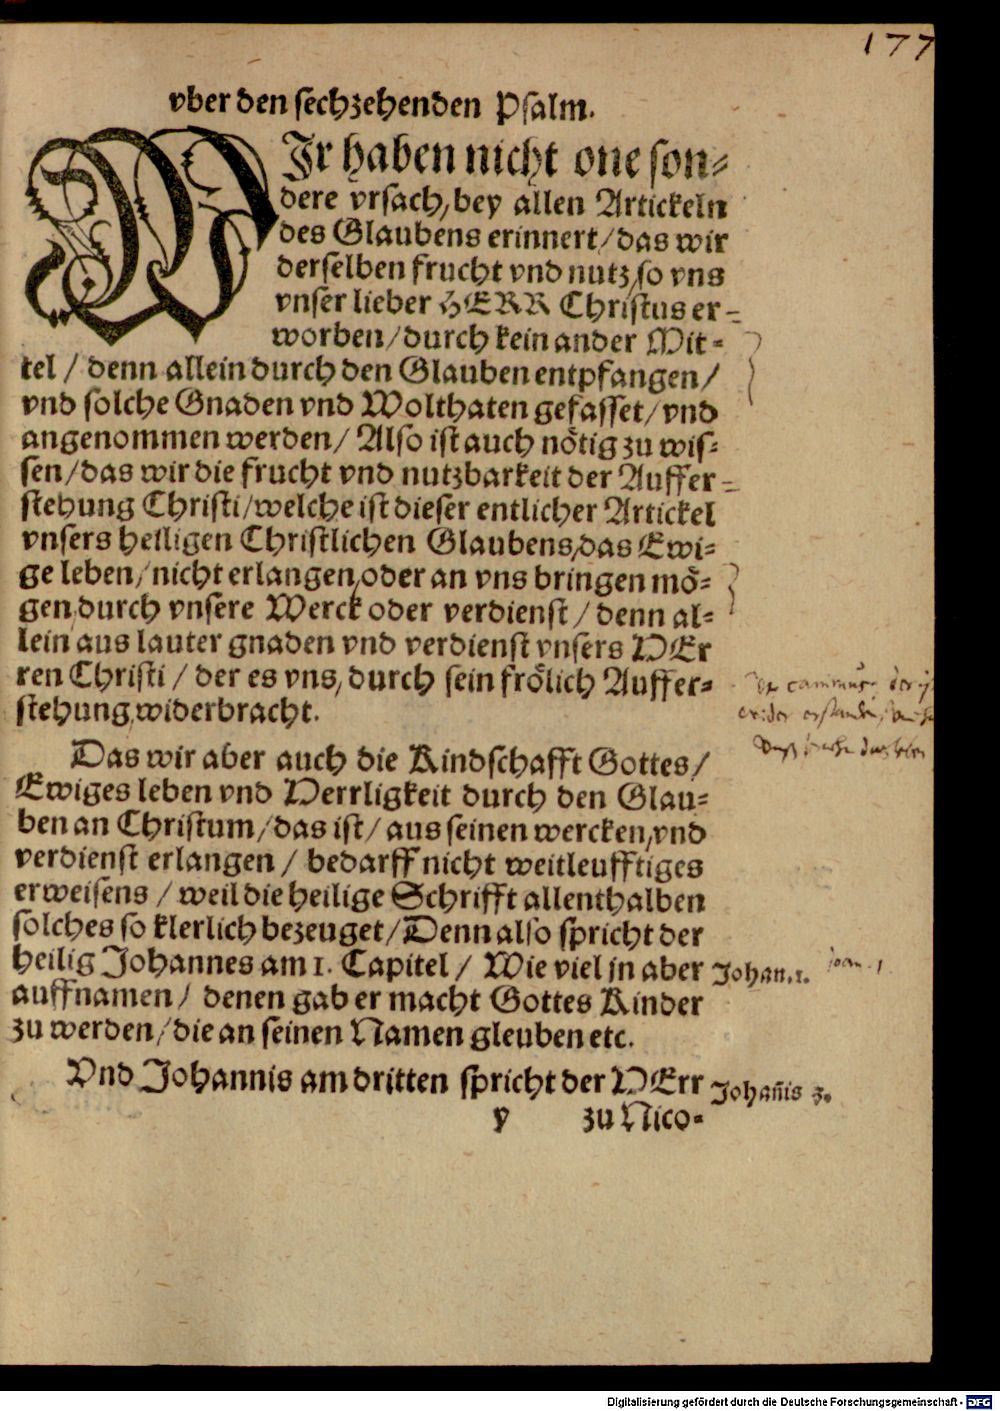 177
vber den sechzehenden Psalm.
WIr haben nicht one son-
dere vrsach/bey allen Artickeln
des Glaubens erinnert/das wir
derselben frucht vnd nutz/so vns
vnser lieber HERR Christus er-
worben/durch kein ander Mit-
tel / denn allein durch den Glauben entpfangen/
vnd solche Gnaden vnd Wolthaten gefasset/vnd
angenommen werden/ Also ist auch nötig zu wis-
sen/das wir die frucht vnd nutzbarkeit der Auffer-
stehung Christi/welche ist dieser entlicher Artickel
vnsers heiligen Christlichen Glaubens/das Ewi-
ge leben/nicht erlangen/oder an vns bringen mö-
gen durch vnsere Werck oder verdienst/ denn al-
lein aus lauter gnaden vnd verdienst vnsers HEr
ren Christi / der es vns, durch sein frölich Auffer-
stehung widerbracht.
Das wir aber auch die Kindschafft Gottes/
Ewiges leben vnd Herrligkeit durch den Glau-
ben an Christum/das ist/ aus seinen wercken/vnd
verdienst erlangen / bedarff nicht weitleufftiges
erweisens / weil die heilige Schrifft allenthalben
solches so klerlich bezeuget/Denn also spricht der
heilig Johannes am 1. Capitel/ Wie viel jn aber
Johan.1.
joan. 1
auffnamen/ denen gab er macht Gottes Kinder
zu werden/die an seinen Namen gleuben etc.
Vnd Johannis am dritten spricht der HErr
Johañis 3.
y zu Nico-
Digitalisierung gefördert durch die Deutsche Forschungsgemeinschaft - DFG